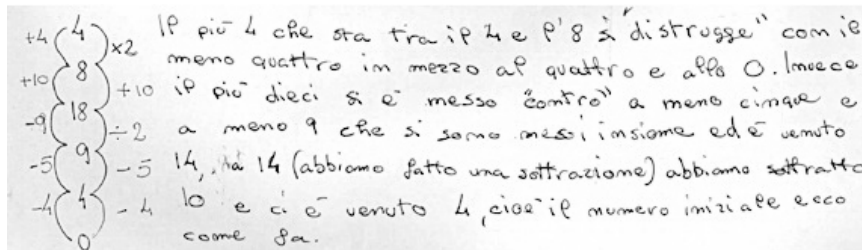 +4 4 ×2
+10 8 +10
-9 18 ÷2
-5 9 -5
-4 4 -4
0
Il più 4 che sta tra il 4 e l'8 si "distrugge" con il
meno quattro in mezzo al quattro e allo 0. Invece
il più dieci si è messo "contro" a meno cinque e
a meno 9 che si sono messi insieme ed è venuto
14, da 14 (abbiamo fatto una sottrazione) abbiamo sottratto
10 e ci è venuto 4, cioè il numero iniziale ecco
come fa.